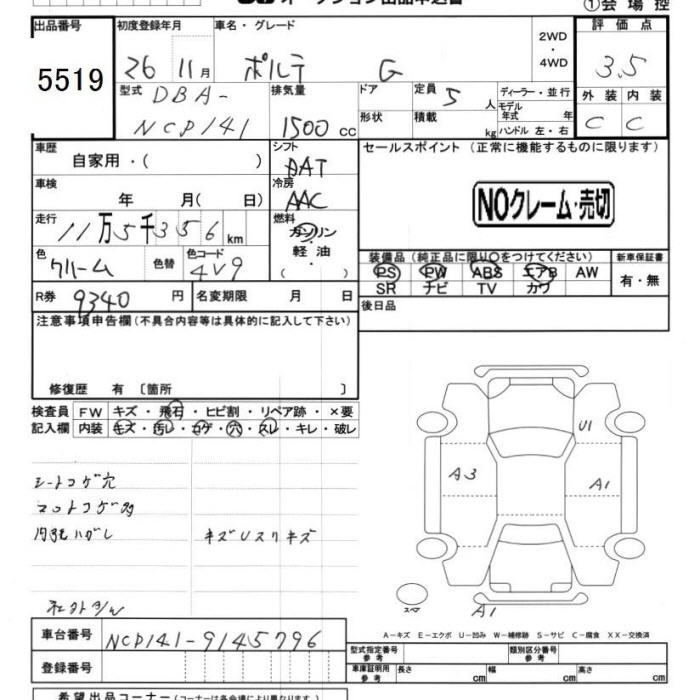 ①会場控
出品番号 初度登録年月 車名・グレード 2WD・4WD 評価点
5519 26 11月 ポルテ G 3.5
型式 DBA-NCP141 排気量 1500cc ドア 形状 定員 5人 積載 kg
ディーラー・並行 モデル年式 年 ハンドル 左・右
外装 内装
C C
車歴 自家用・( ) シフト DAT セールスポイント (正常に機能するものに限ります)
車検 年 月( 日) 冷房 AAC NOクレーム・売切
走行 11万5千356km 燃料 ガソリン・軽油・( )
色 クリーム 色替 色コード 4V9
装備品(純正品に限り○をつけてください) 新車保証書
PS PW ABS エアB AW 有・無
SR ナビ TV カワ
R券 9340円 名変期限 月 日 後日品
注意事項申告欄(不具合内容等は具体的に記入して下さい)
修復歴 有 〔箇所 〕
検査員 FW キズ・飛石・ヒビ割・リペア跡・×要
記入欄 内装 キズ・汚レ・コゲ・穴・スレ・キレ・破レ
シートコゲ穴
マットコゲ
ハガレ キズUスリキズ
U1
A3 A1
スペア A1
A-キズ E-エクボ U-凹み W-補修跡 S-サビ C-腐食 XX-交換済
車台番号 NCP141-9145796
型式指定番号 参考 類別区分番号 参考
登録番号 車庫証明用 参考 長さ cm 幅 cm 高さ cm
希望出品コーナー(コーナーは各会場により異なります)